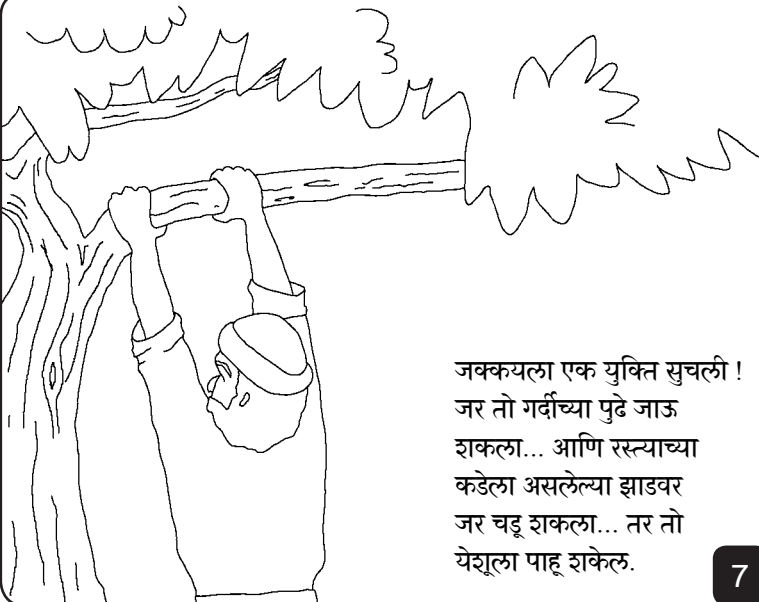 जक्कयला एक युक्ति सुचली !
जर तो गर्दीच्या पुढे जाऊ
शकला... आणि रस्त्याच्या
कडेला असलेल्या झाडवर
जर चडू शकला... तर तो
येशूला पाहू शकेल.
7